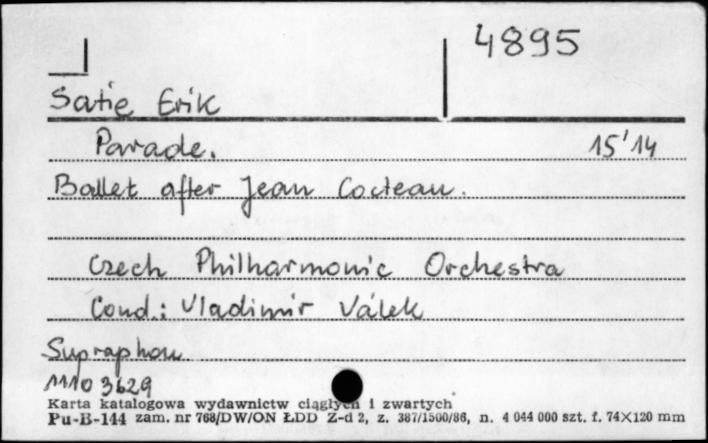 4895
Satie Erik
Parade. 15'14
Ballet after Jean Cocteau.
Czech Philharmonic Orchestra
Cond.: Vladimir Válek
Supraphon
1110 3629
Karta katalogowa wydawnictw ciągłych i zwartych
Pu-B-144 zam. nr 768/DW/ON ŁDD Z-d 2, z. 387/1500/86, n. 4 044 000 szt. f. 74×120 mm